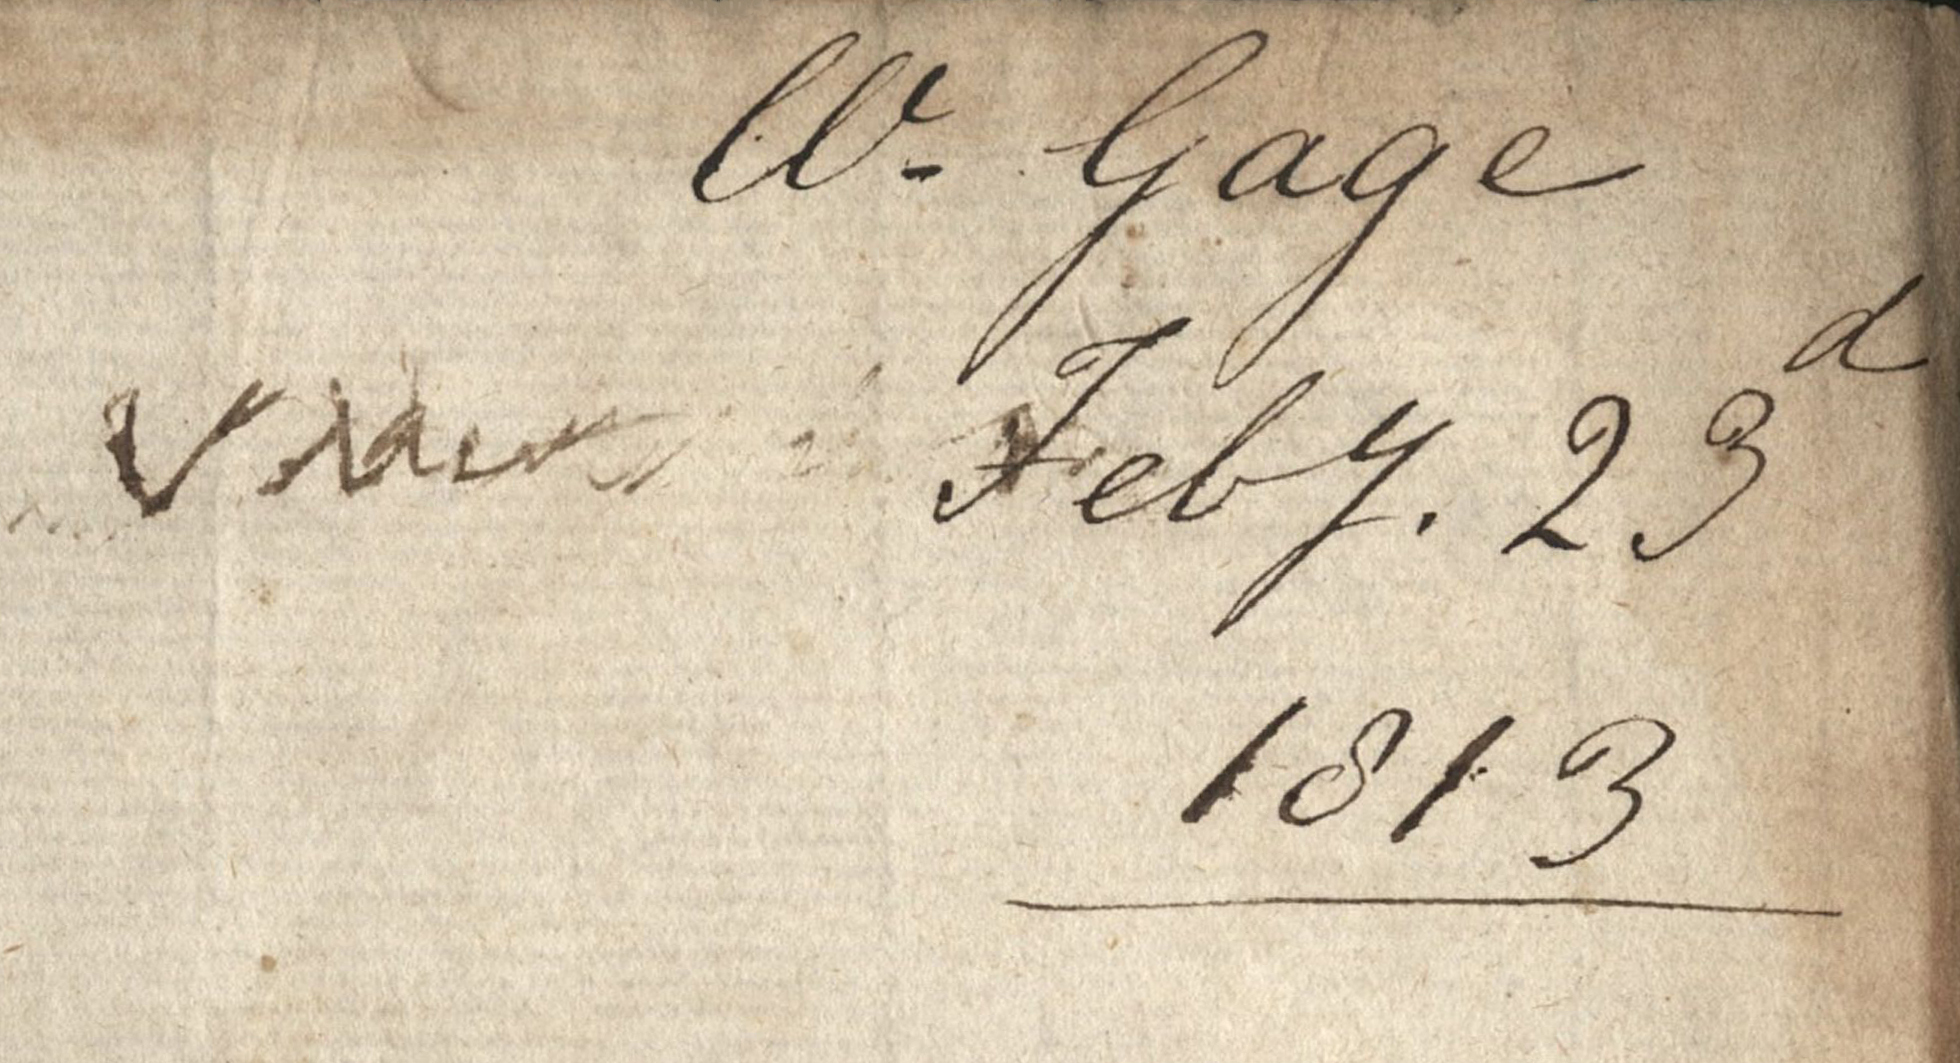 W. Gage
Feby. 23d
1813